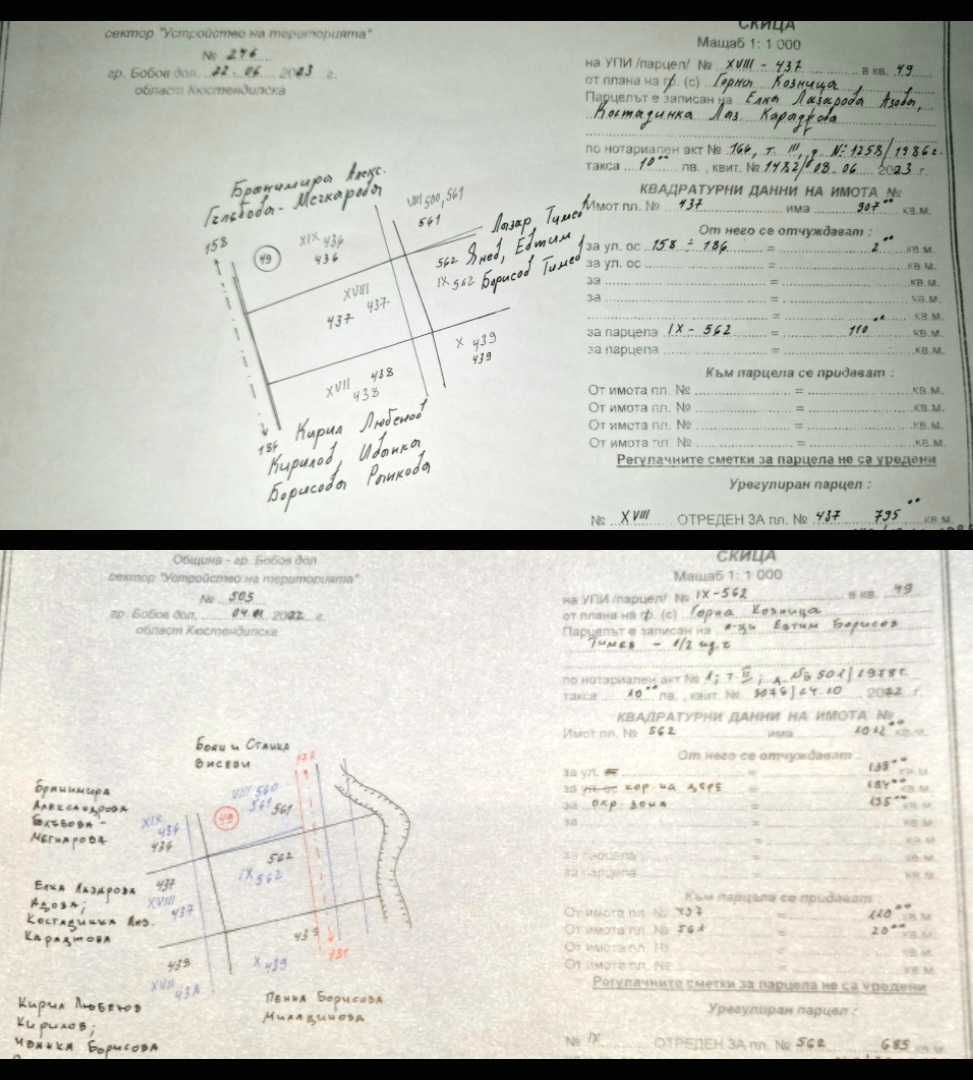 сектор "Устройство на територията"
№ 246
гр. Бобов дол. 22.06 2023 г.
област Кюстендилска
СКИЦА
Мащаб 1: 1 000
на УПИ /парцел/ № XVIII - 437 в кв. 49
от плана на гр. (с) Горна Козница
Парцелът е записан на Елка Лазарова Адова,
Костадинка Лаз. Караджова
по нотариален акт № 164, т. III, д. № 1258/1986г.
такса 10°° лв., квит. № 1482/08.06 2023 г.
КВАДРАТУРНИ ДАННИ НА ИМОТА №
Имот пл. № 437 има 907°° кв.м.
От него се отчуждават :
за ул. ос 158 ÷ 184 = 2°° кв.м.
за ул. ос = кв.м.
за = кв.м.
за = кв.м.
= кв.м.
за парцела IX - 562 = 110°° кв.м.
за парцела = кв.м.
Към парцела се придават :
От имота пл. № = кв.м.
От имота пл. № = кв.м.
От имота пл. № = кв.м.
От имота пл. № = кв.м.
Регулачните сметки за парцела не са уредени
Урегулиран парцел :
№ XVIII ОТРЕДЕН ЗА пл. № 437 795°° кв.м.
Бранимира Алекс.
Гълъбова - Мечкарова
158
49
XIX 434
436
VIII 500, 561
561
Лазар Тимев
562 Янев, Евтим
IX 562 Борисов Тимев
XVIII
437 437
X 439
439
XVII 438
438
184
Кирил Любенов
Кирилов, Иванка
Борисова Рашкова
Община - гр. Бобов дол
сектор "Устройство на територията"
№ 505
гр. Бобов дол, 04.11 2022 г.
област Кюстендилска
СКИЦА
Мащаб 1: 1 000
на УПИ /парцел/ № IX-562 в кв. 49
от плана на гр. (с) Горна Козница
Парцелът е записан на н-ци Евтим Борисов
Тимев - 1/2 ид.ч
по нотариален акт № 1; т. II; д. № 501/1978г.
такса 10°° лв., квит. № 3076/24.10 2022 г.
КВАДРАТУРНИ ДАННИ НА ИМОТА №
Имот пл. № 562 има 1012°° кв.м.
От него се отчуждават :
за ул. = 138°° кв.м.
за ул. ос кор. на дере = 184°° кв.м.
за окр. зона = 135°° кв.м.
за = кв.м.
= кв.м.
за парцела = кв.м.
за парцела = кв.м.
Към парцела се придават
От имота пл. № 437 = 110°° кв.м.
От имота пл. № 561 = 20°° кв.м.
От имота пл. № = кв.м.
От имота пл. № = кв.м.
Регулачните сметки за парцела не са уредени
Урегулиран парцел :
№ IX ОТРЕДЕН ЗА пл. № 562 685 кв.м.
Боян и Станка
Висеви
Бранимира
Александрова
Гълъбова -
Мечкарова
XIX
434
436
VIII 560
561 561
49
562
IX 562
Елка Лазарова
Адова;
Костадинка Лаз.
Караджова
437
XVIII
437
439
X 439
438
XVII
438
Кирил Любенов
Кирилов;
Иванка Борисова
Пенка Борисова
Миладинова